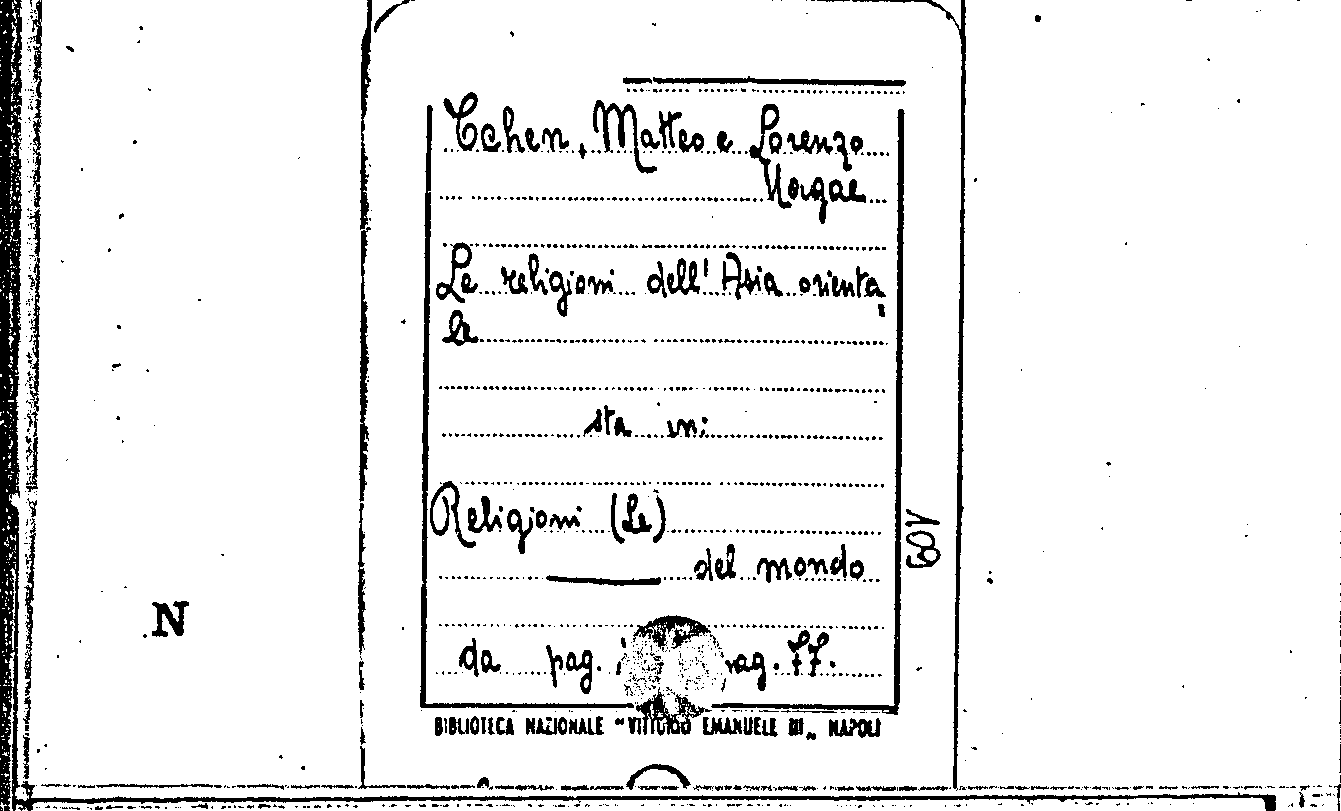 Tchen, Matteo e Lorenzo
Norgae
Le religioni dell'Asia orienta
le
sta in:
Religioni (Le)
del mondo
da pag. pag. 77.
BIBLIOTECA NAZIONALE "VITTORIO EMANUELE III„ NAPOLI
N